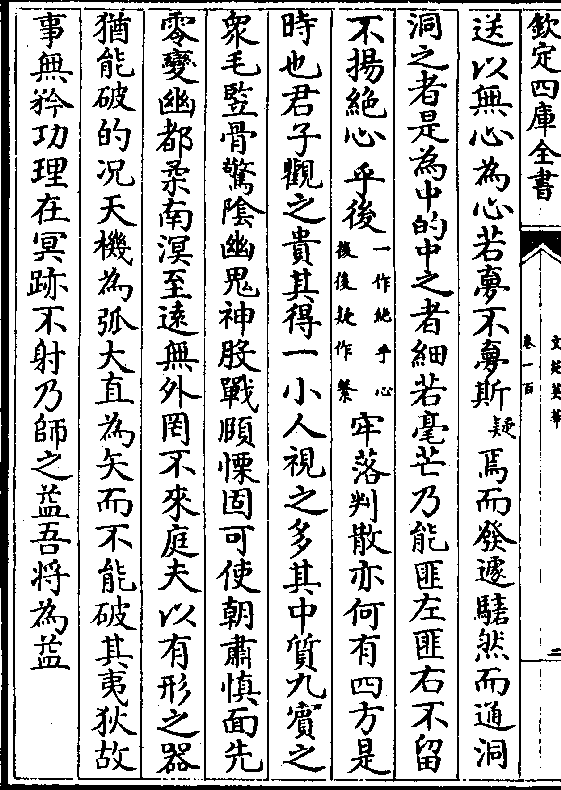 欽定四庫全書
文苑英華
卷一百
二
送以無心為心若夢不夢斯疑焉而發遽𩣺然而通洞
洞之者是為中的中之者細若毫芒乃能匪左匪右不留
不揚絶心乎後一作絶乎心後後疑作繫牢落判散亦何有四方是
時也君子觀之貴其得一小人視之多其中質九賔之
衆毛竪骨驚陰幽鬼神股戰願慄固可使朝肅慎面先
零變幽都柔南溟至逺無外罔不來庭夫以有形之器
猶能破的况天機為弧大直為矢而不能破其夷狄故
事無矜功理在冥跡不射乃師之益吾将為益